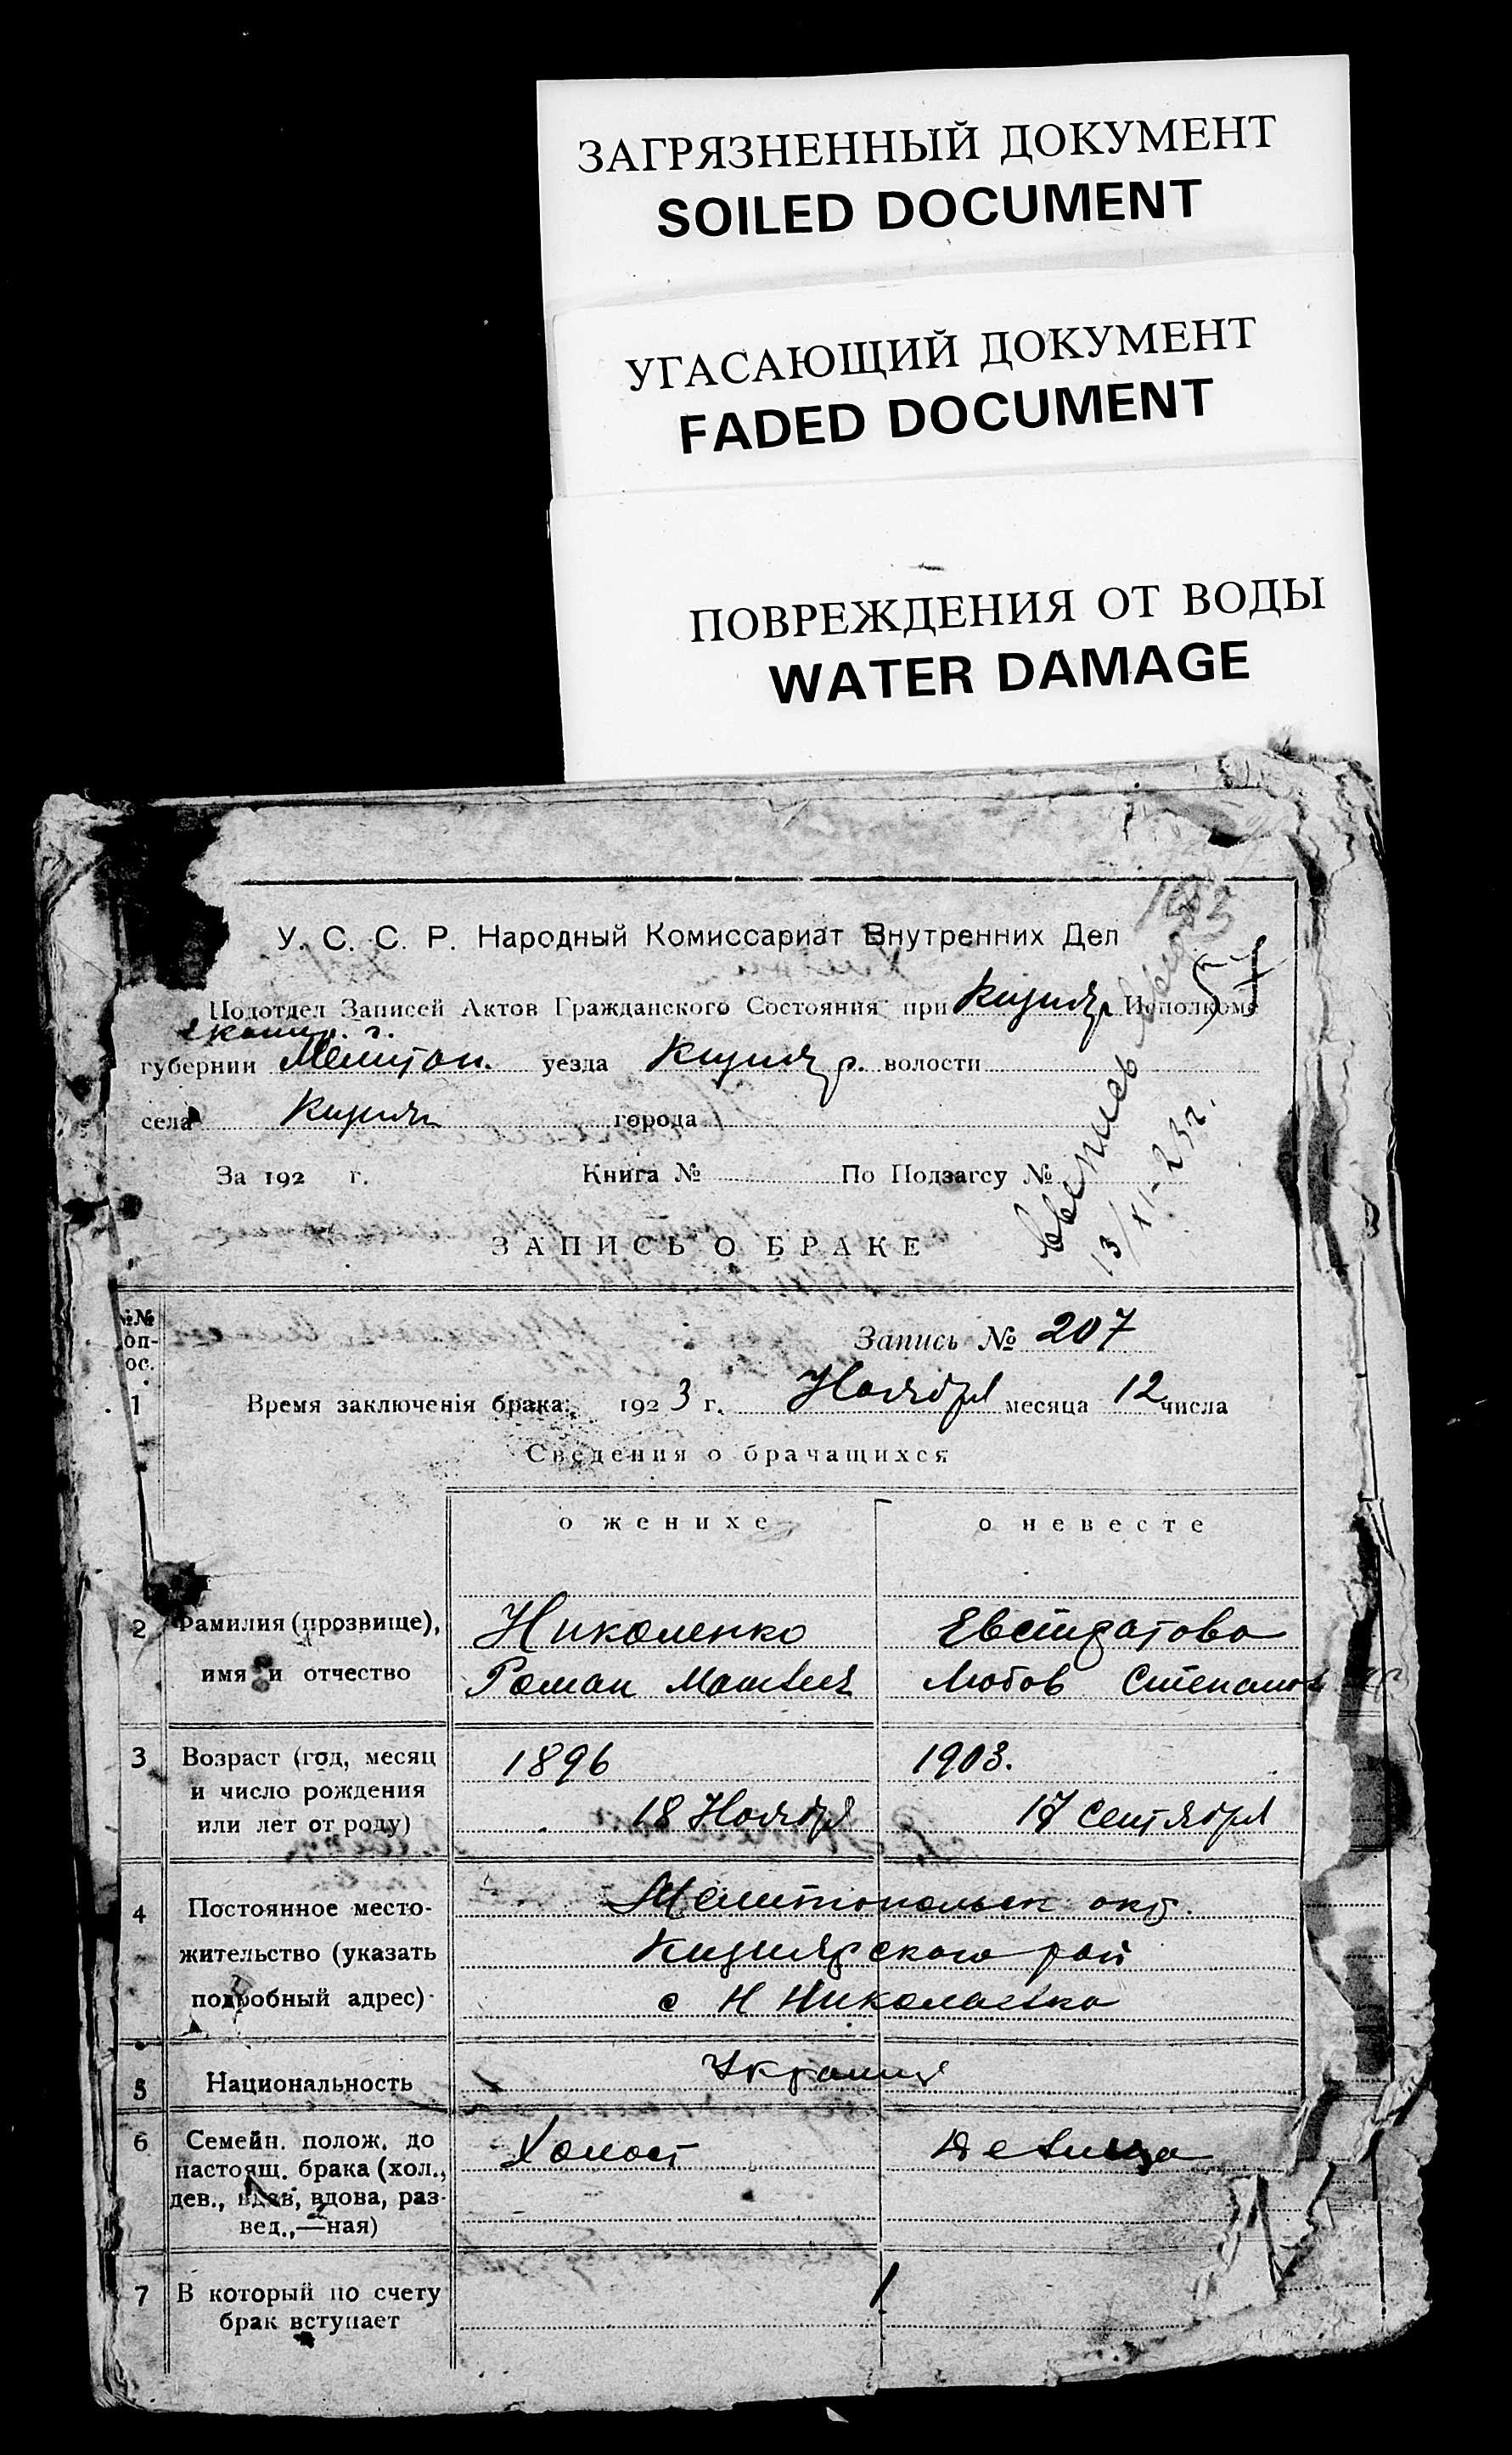 ЗАГРЯЗНЕННЫЙ ДОКУМЕНТ
SOILED DOCUMENT
УГАСАЮЩИЙ ДОКУМЕНТ
FADED DOCUMENT
ПОВРЕЖДЕНИЯ ОТ ВОДЫ
WATER DAMAGE
57
У. С. С. Р. Народный Комиссариат Внутренних Дел
Подотдел Записей Актов Гражданского Состояния при Кизияр Исполкоме
екатер. г.
губернии Мелитоп. уезда Кизияр. волости
села Кизияр города
За 192 г. Книга № По Подзагсу №
13/XI-23г.
ЗАПИСЬ О БРАКЕ
№№
оп-
ос.
Запись № 207
1 Время заключенія брака: 1923 г. Ноября месяца 12 числа
Сведения о брачащихся
о женихе о невесте
2 Фамилия (прозвище), Николенко Евстратова
имя и отчество Роман Матвеев Любов Степанов
3 Возраст (год, месяц 1896 1903.
и число рождения
или лет от роду) 18 Ноября 17 Сентября
4 Постоянное место- Мелитопольск окр.
жительство (указать Кизиярского рай
подробный адрес) с Н Николаевка
5 Национальность Украинц
6 Семейн. полож. до Холост Девица
настоящ. брака (хол.,
дев., вдов, вдова, раз-
вед.,—ная)
7 В который по счету 1
брак вступает